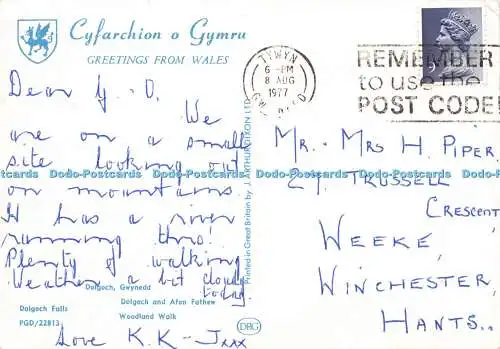 Cyfarchion o Gymru
GREETINGS FROM WALES
Dear G - D. We
are on a small
site looking out
on mountains.
It has a river
running thro!
Plenty of walking
Weather a bit cloudy
today.
Love K.K - Jxxx
Dolgoch, Gwynedd
Dolgoch Falls
Dolgoch and Afon Fathew
PGD/22813
Woodland Walk
Printed in Great Britain by J. ARTHUR DIXON LTD.
DRG
TYWYN
6 - PM
8 AUG
1977
REMEMBER
to use the
POST CODE
Mr. Mrs H. PIPER
27. TRUSSELL
CRESCENT
WEEKE,
WINCHESTER,
HANTS..
Dodo-Postcards Dodo-Postcards Dodo-Postcards Dodo-Postcards